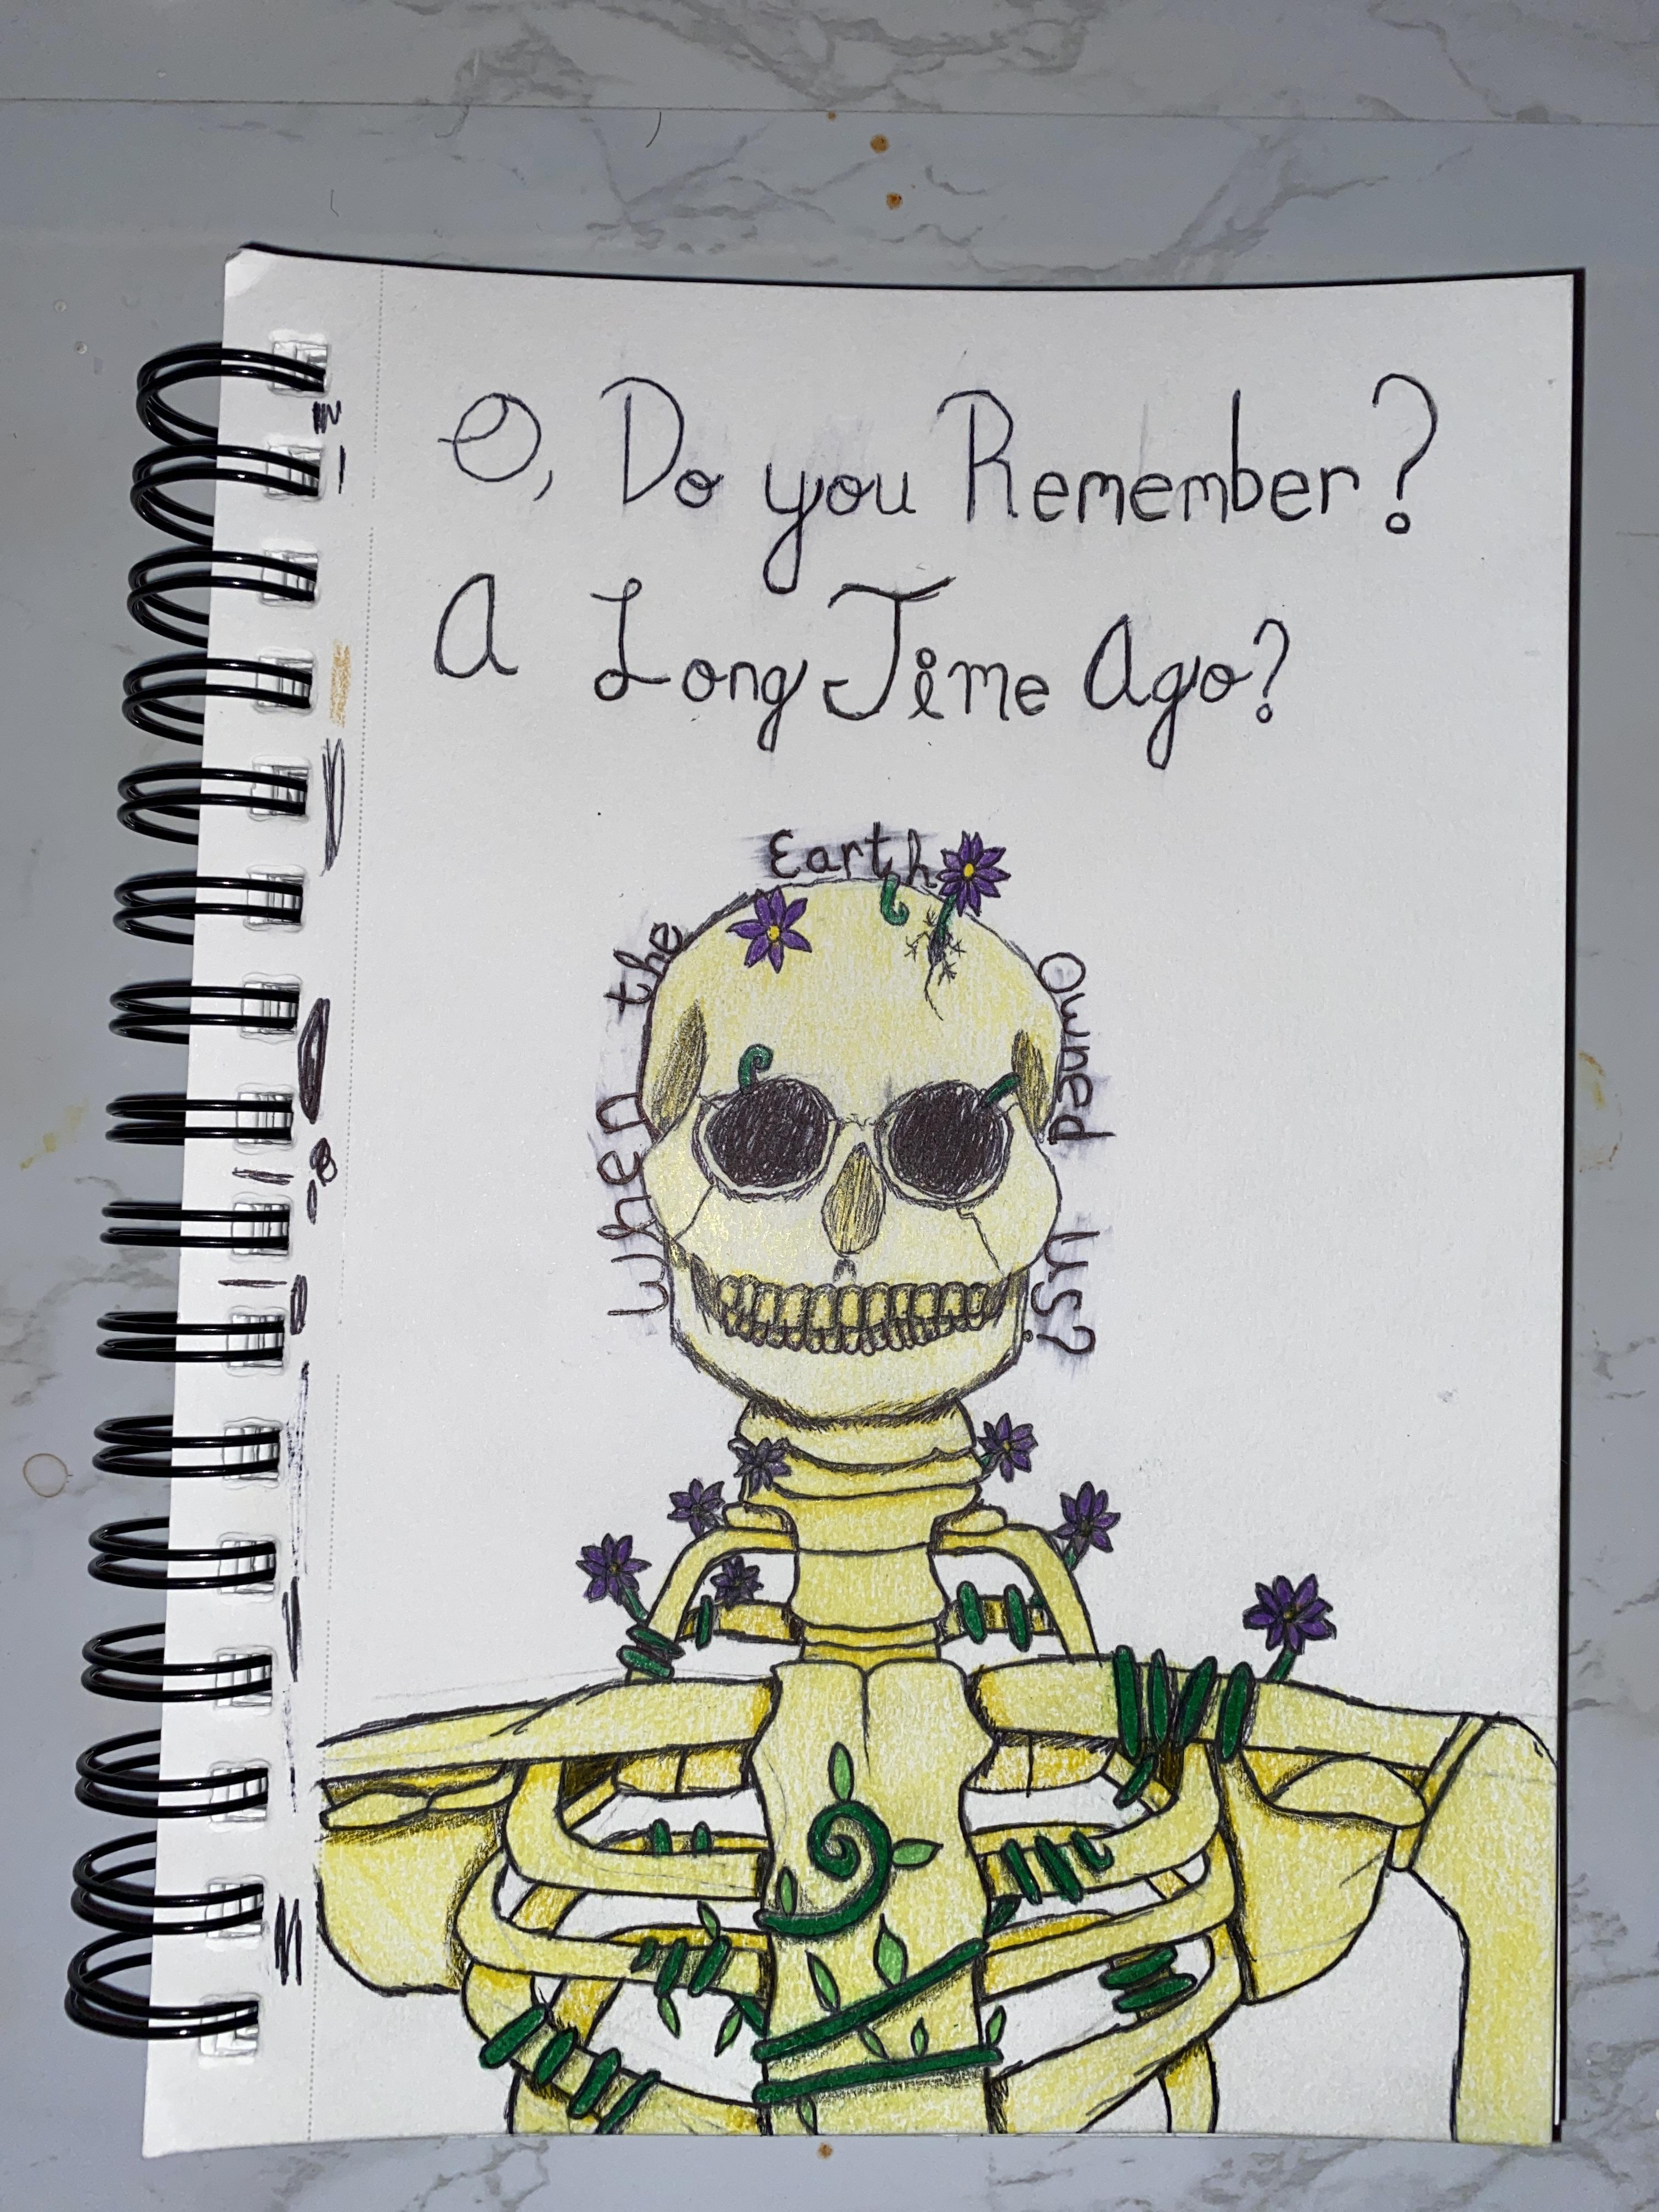 O, Do you Remember?
A Long Time Ago?
When the Earth Owned us?